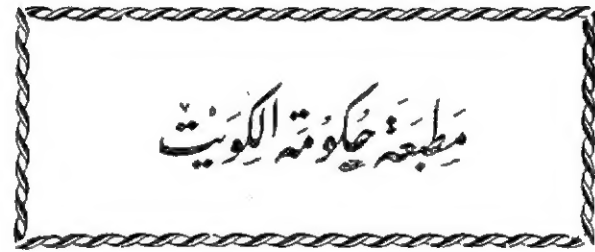 مَطبَعَة حُكوُمَة الكِوَيْت